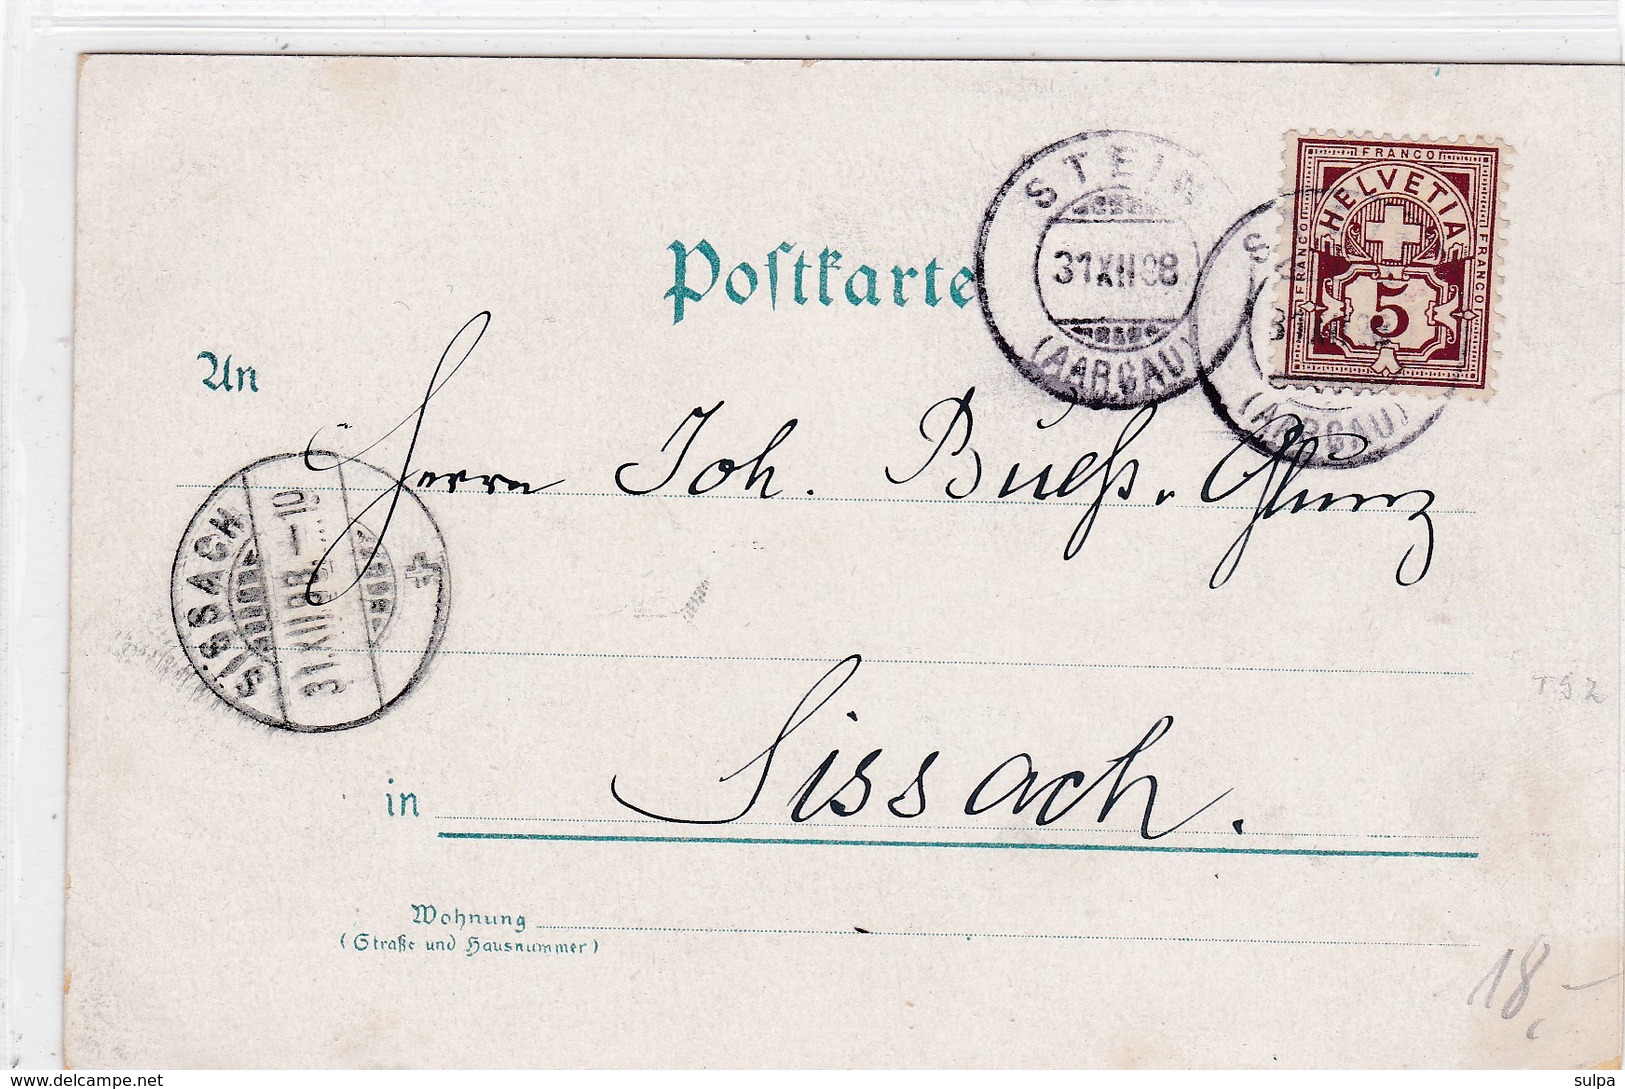 Postkarte
STEIN
31 XII 98
(AARGAU)
FRANCO
HELVETIA
FRANCO
FRANCO
5
(AARGAU)
An
Herrn Joh. Bueß-Glunz
SISSACH
31.XII.98.-10
in Sissach.
Wohnung
(Straße und Hausnummer)
TSZ
18,-
delcampe.net
sulpa